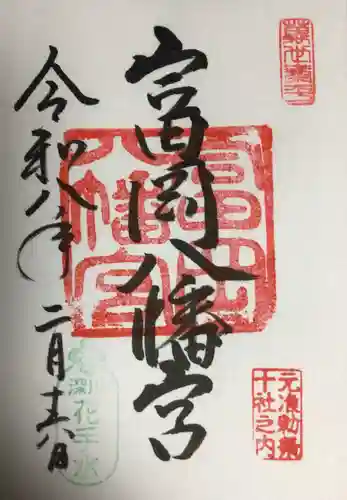 富岡八幡宮
元准勅祭
十社之内
富岡
八幡宮
令和八年 二月十六日
花手水